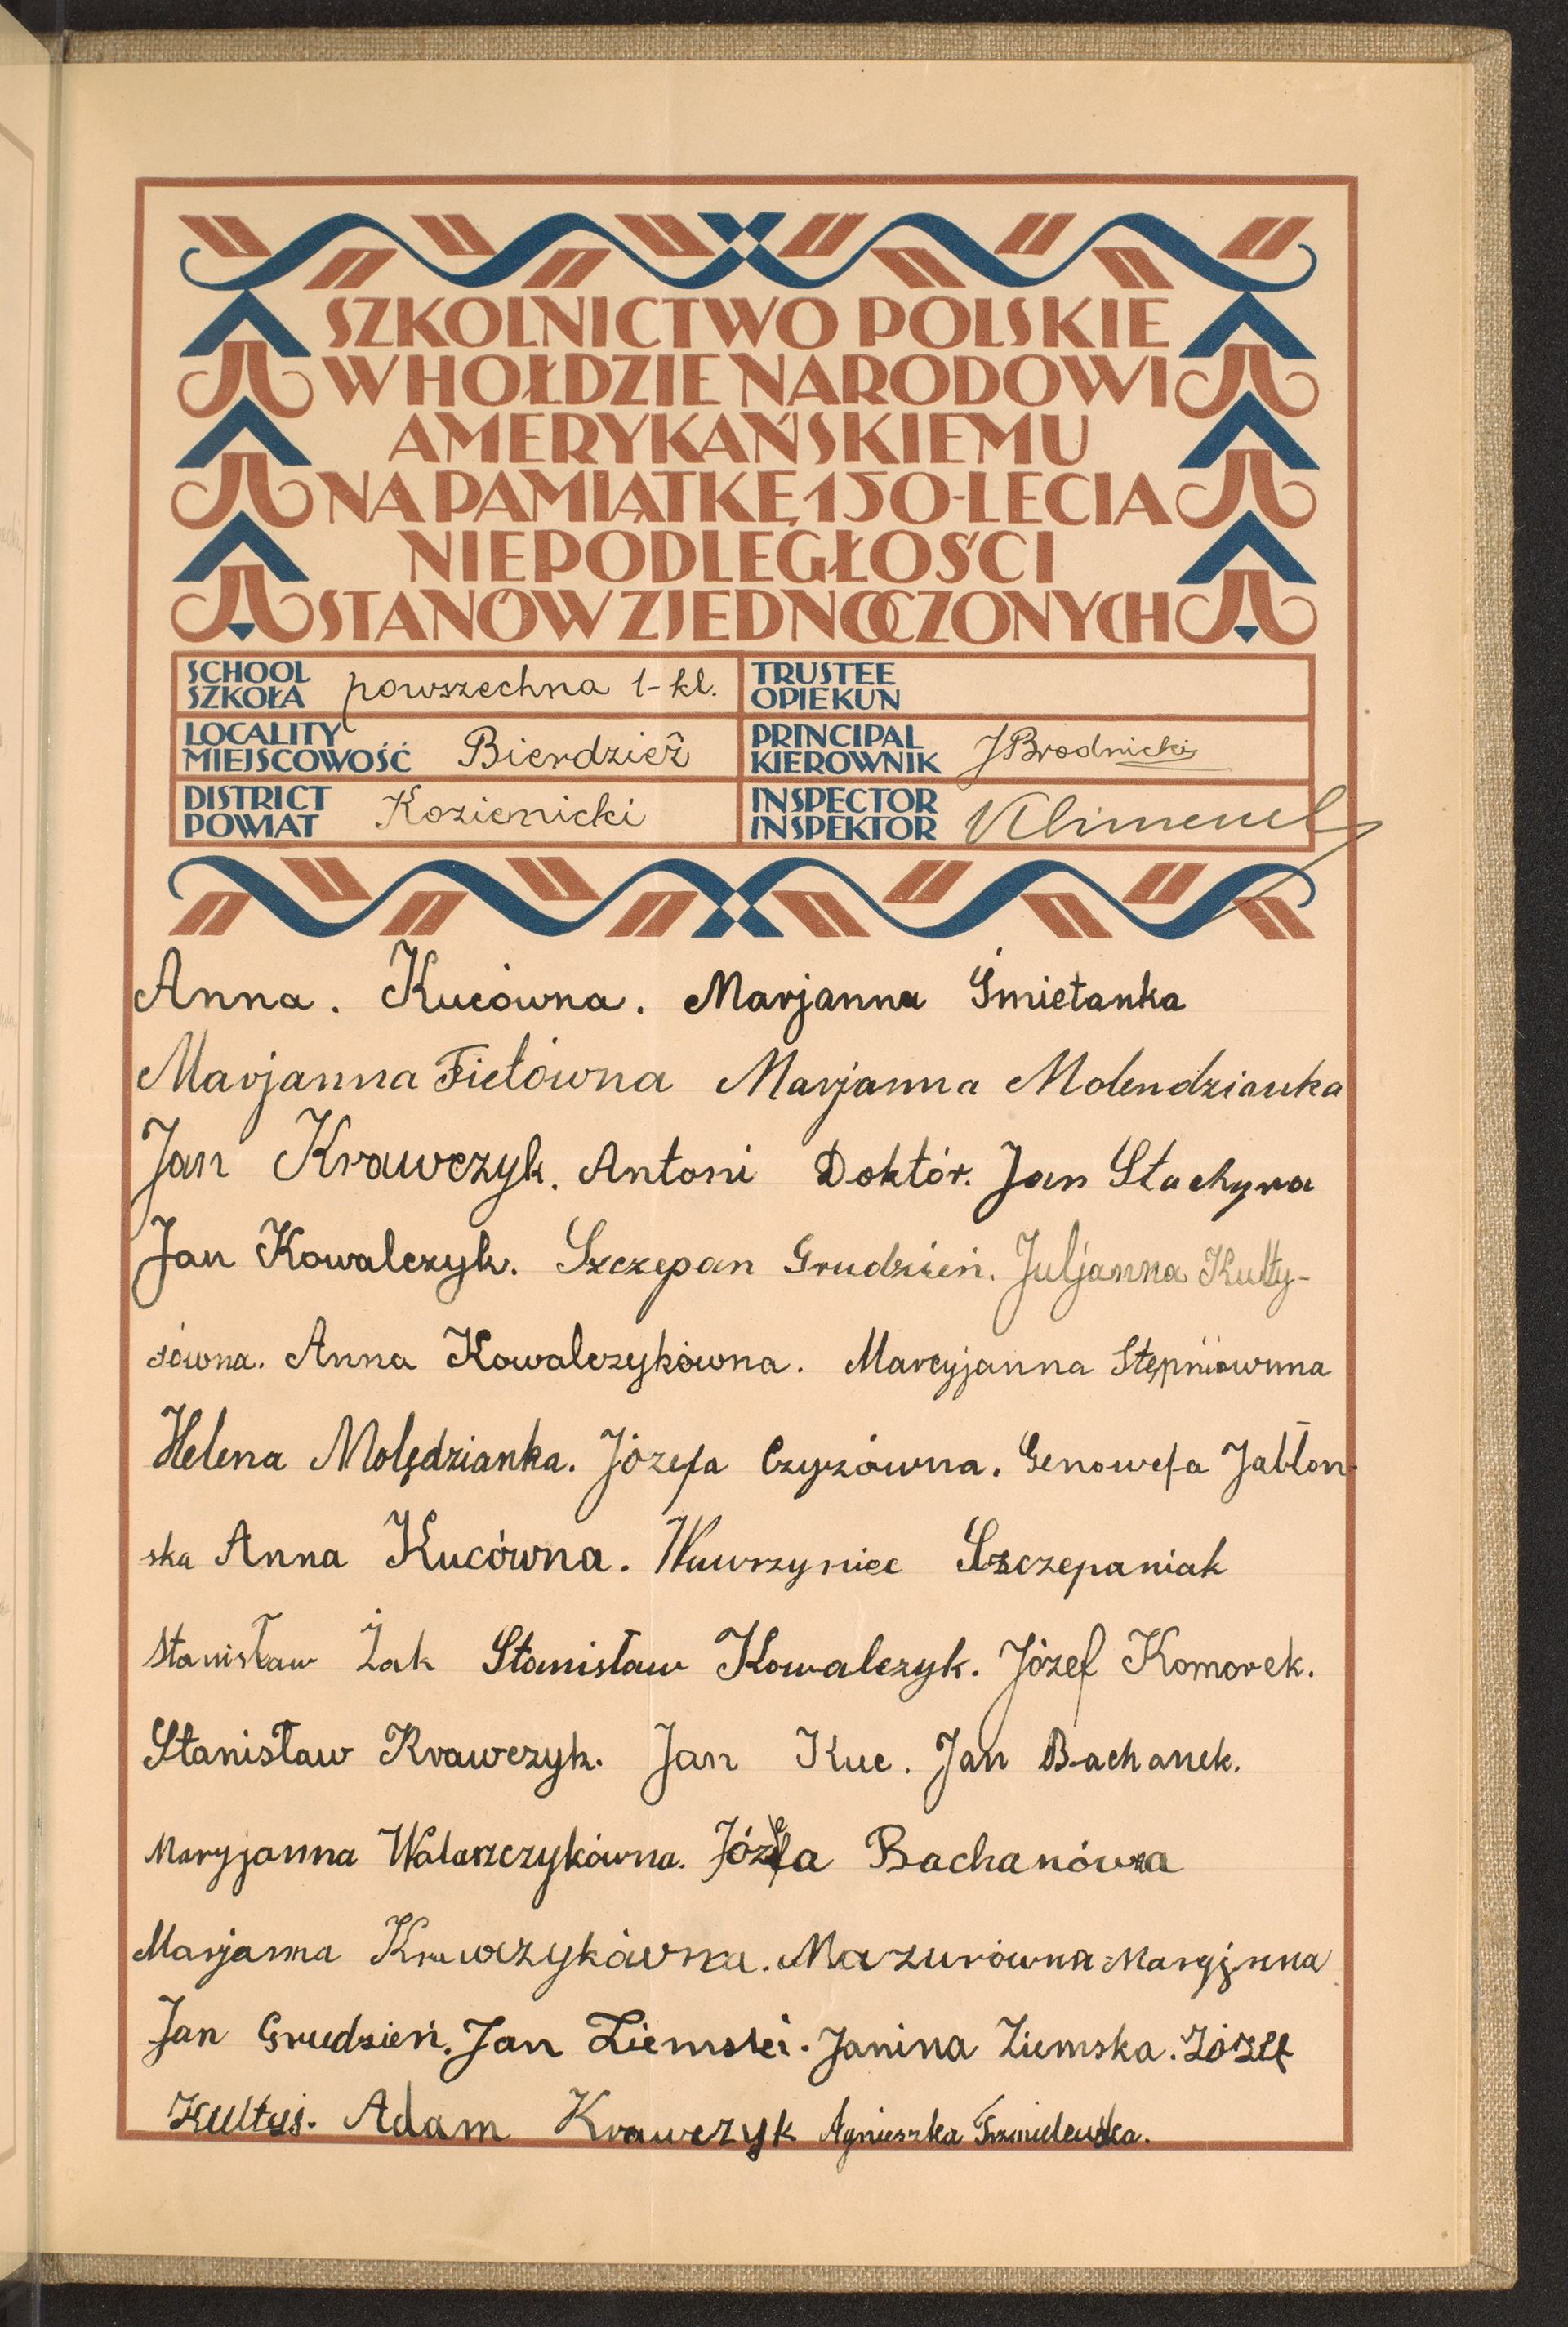 SZKOLNICTWO POLSKIE
W HOŁDZIE NARODOWI
AMERYKAŃSKIEMU
NA PAMIĄTKĘ 150-LECIA
NIEPODLEGŁOŚCI
STANÓW ZJEDNOCZONYCH
SCHOOL
SZKOŁA powszechna 1-kl.
TRUSTEE
OPIEKUN
LOCALITY
MIEJSCOWOŚĆ Bierdzież
PRINCIPAL
KIEROWNIK J Brodnicki
DISTRICT
POWIAT Kozienicki
INSPECTOR
INSPEKTOR
Anna. Kucówna. Marjanna Śmietanka
Marjanna Fiełówna Marjanna Molendzianka
Jan Krawczyk. Antoni Doktór. Jan Stachyra
Jan Kowalczyk. Szczepan Grudzień. Juljanna Kułty-
sówna. Anna Kowalczykówna. Marcyjanna Stępniównna
Helena Molędzianka. Józefa Czyżówna. Genowefa Jabłon-
ska Anna Kucówna. Wawrzyniec Szczepaniak
Stanisław Żak Stanisław Kowalczyk. Józef Komorek.
Stanisław Krawczyk. Jan Kuc. Jan Bachanek.
Maryjanna Walaszczykówna. Józefa Bachanówna
Marjanna Krawczykówna. Mazurówna Maryjnna
Jan Grudzień. Jan Ziemski. Janina Ziemska. Józef
Kułtyś. Adam Krawczyk Agnieszka